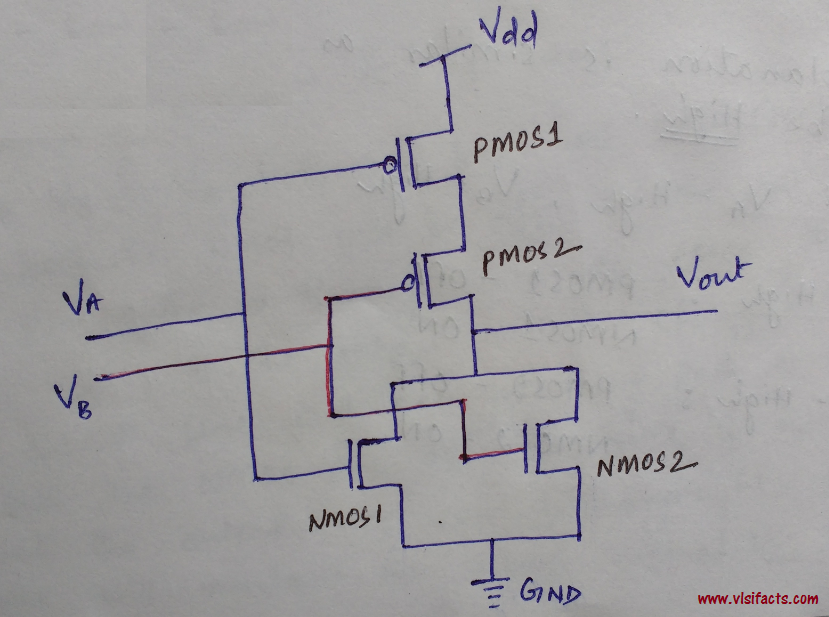 Vdd
PMOS1
PMOS2
VA
Vout
VB
NMOS2
NMOS1
GND
www.vlsifacts.com